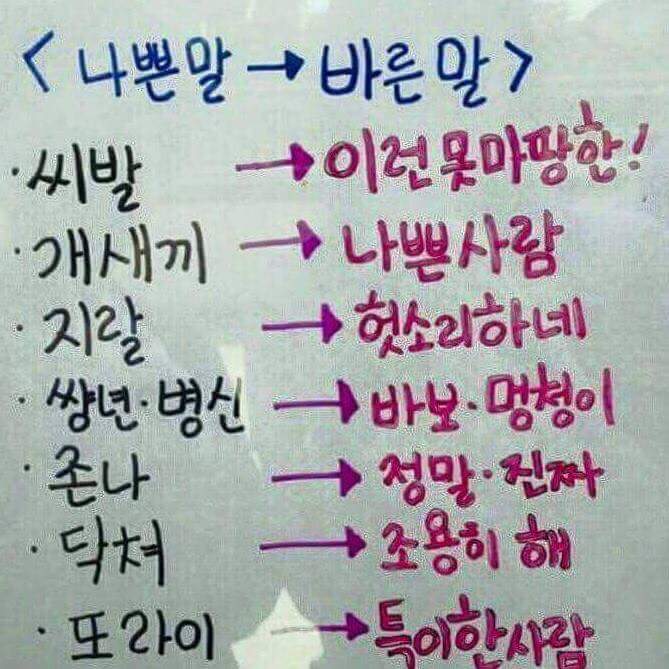 <나쁜말→바른말>
·씨발 → 이런못마땅한!
·개새끼 → 나쁜사람
·지랄 → 헛소리하네
·쌍년·병신 → 바보·멍청이
·존나 → 정말·진짜
·닥쳐 → 조용히 해
·또라이 → 특이한사람